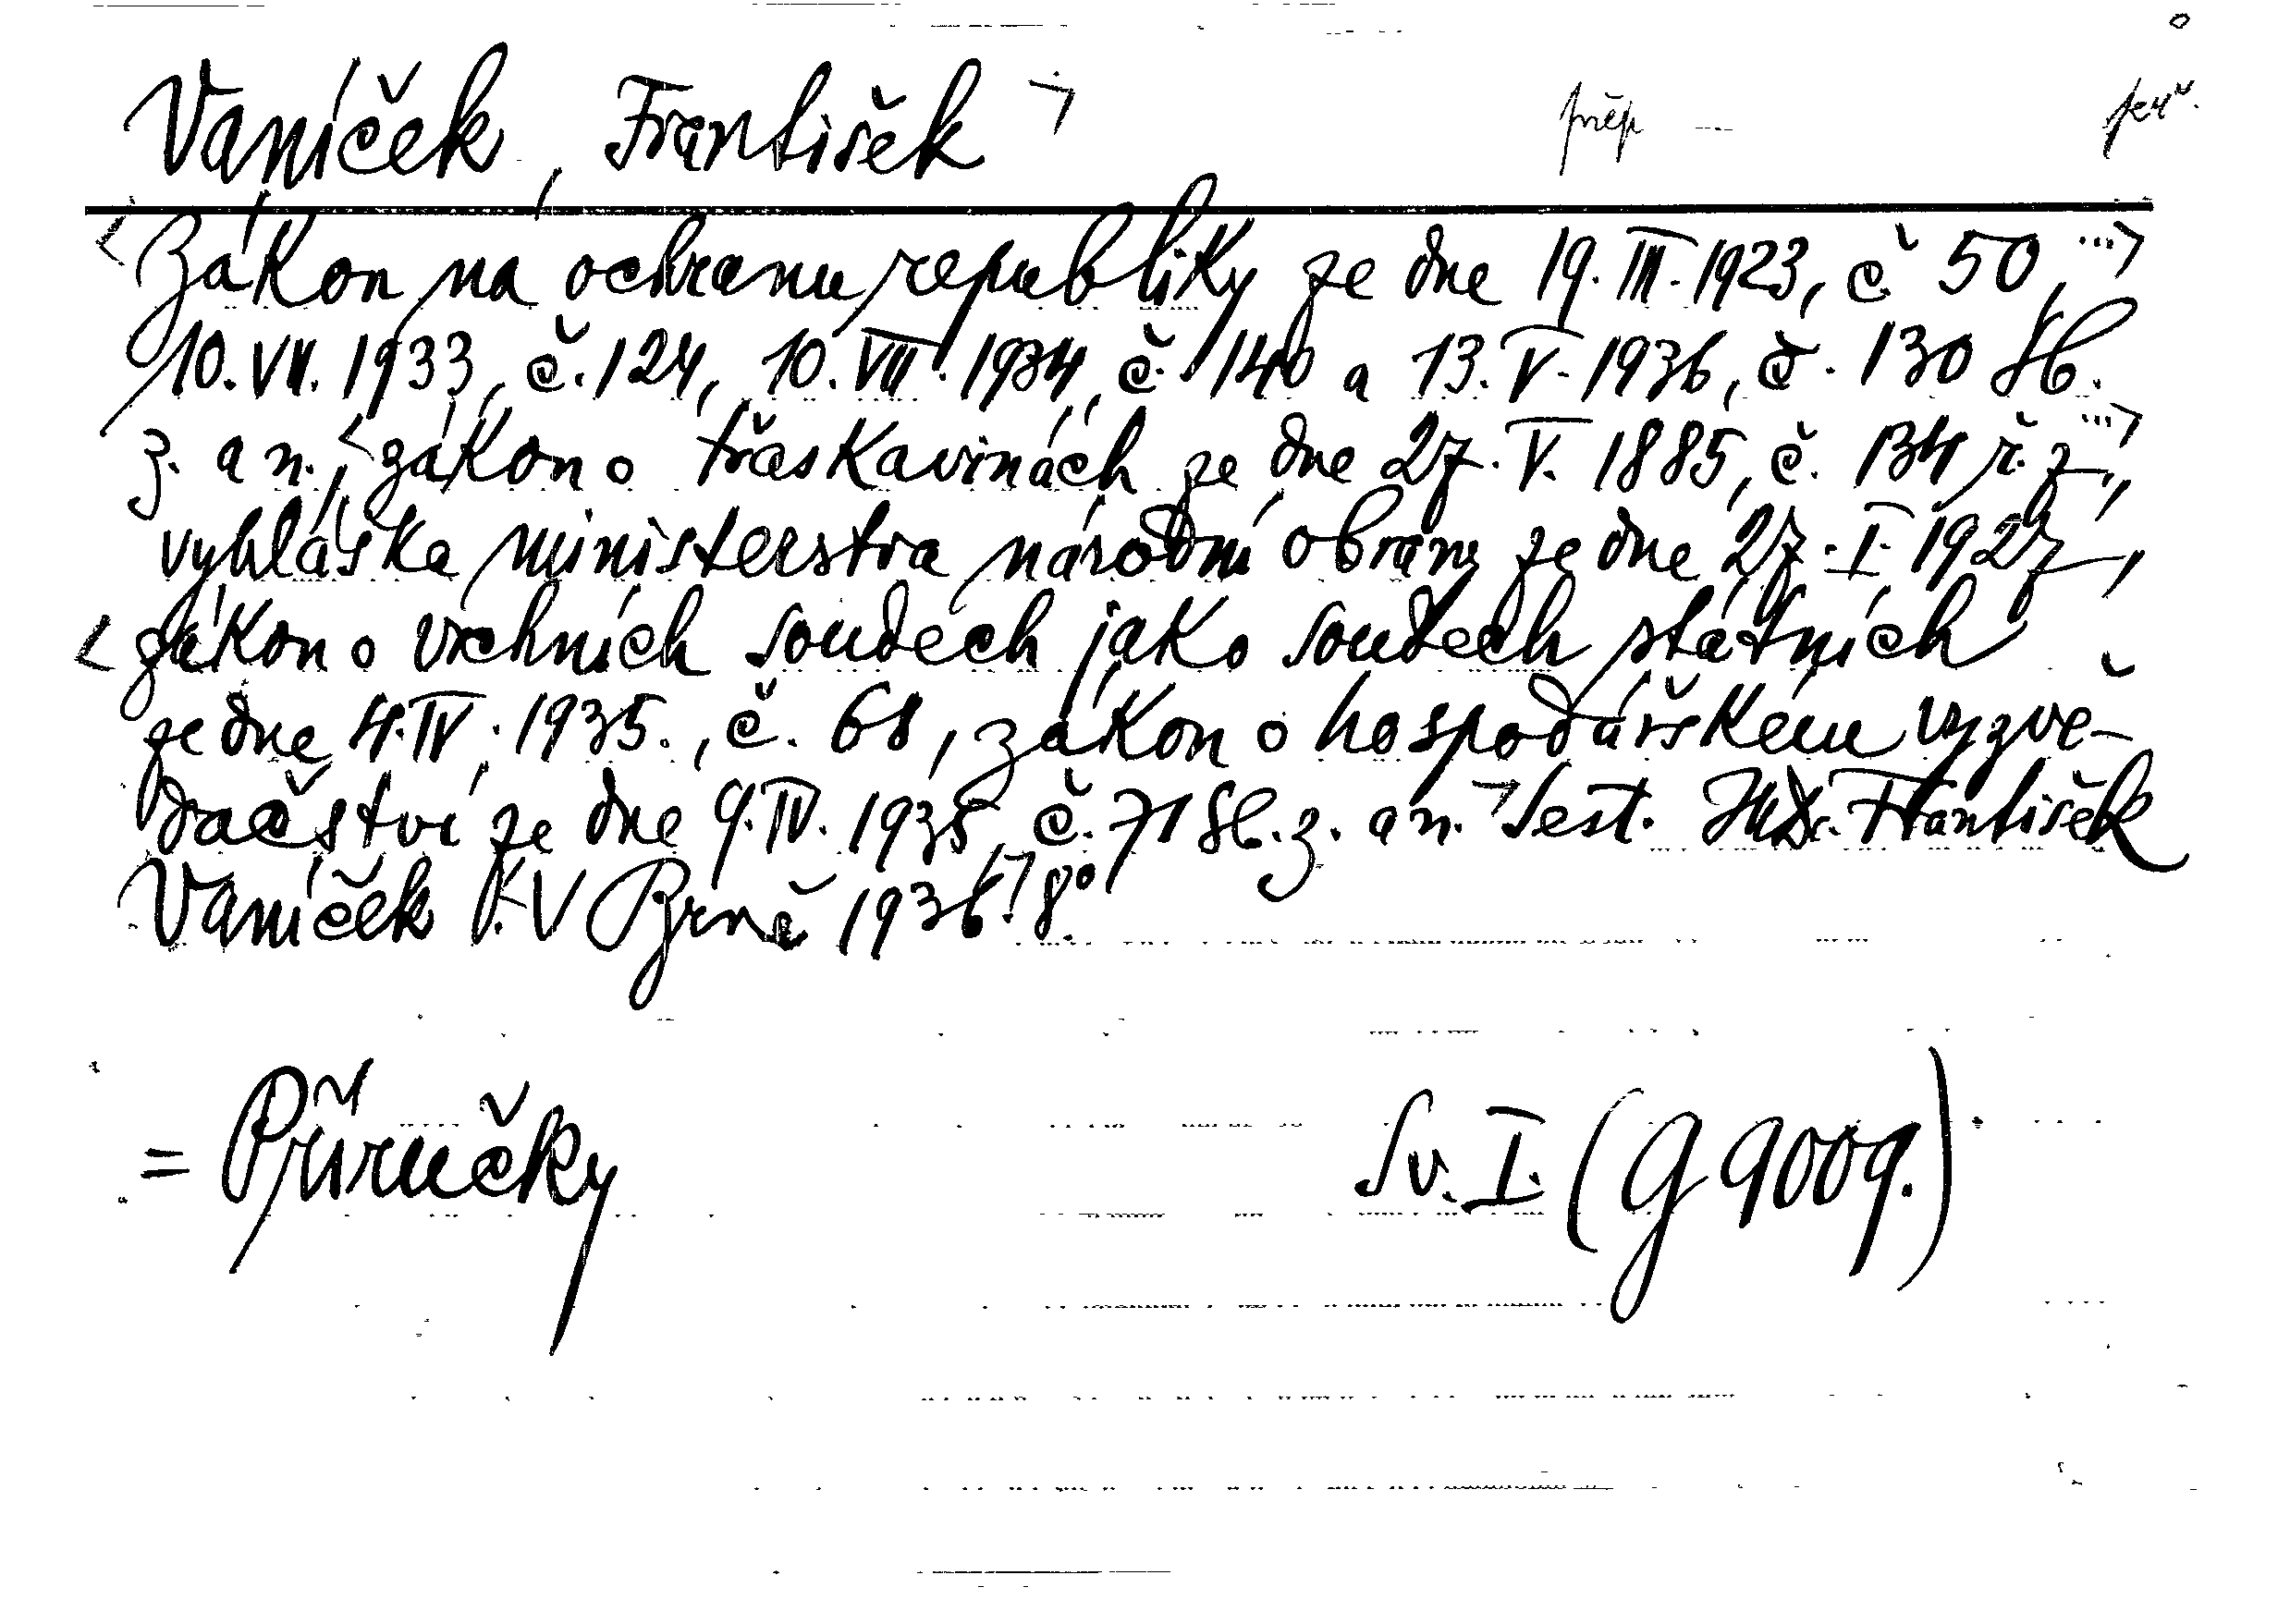 Vaníček, František
Zákon na ochranu republiky ze dne 19. III. 1923, č. 50,
10. VII. 1933, č. 124, 10. VII. 1934, č. 140 a 13. V. 1936, č. 130 Sb.
z. a n., zákon o třaskavinách ze dne 27. V. 1885, č. 134 ř. z.,
vyhláška ministerstva národní obrany ze dne 27. I. 1927,
zákon o vrchních soudech jako soudech státních
ze dne 4. IV. 1935., č. 68, zákon o hospodářském vyzvě-
dačství ze dne 9. IV. 1935, č. 71 Sb. z. a n. Sest. JUDr. František
Vaníček V Brně 1936. 8°.
= Příručky Sv. I. (G 9009.)